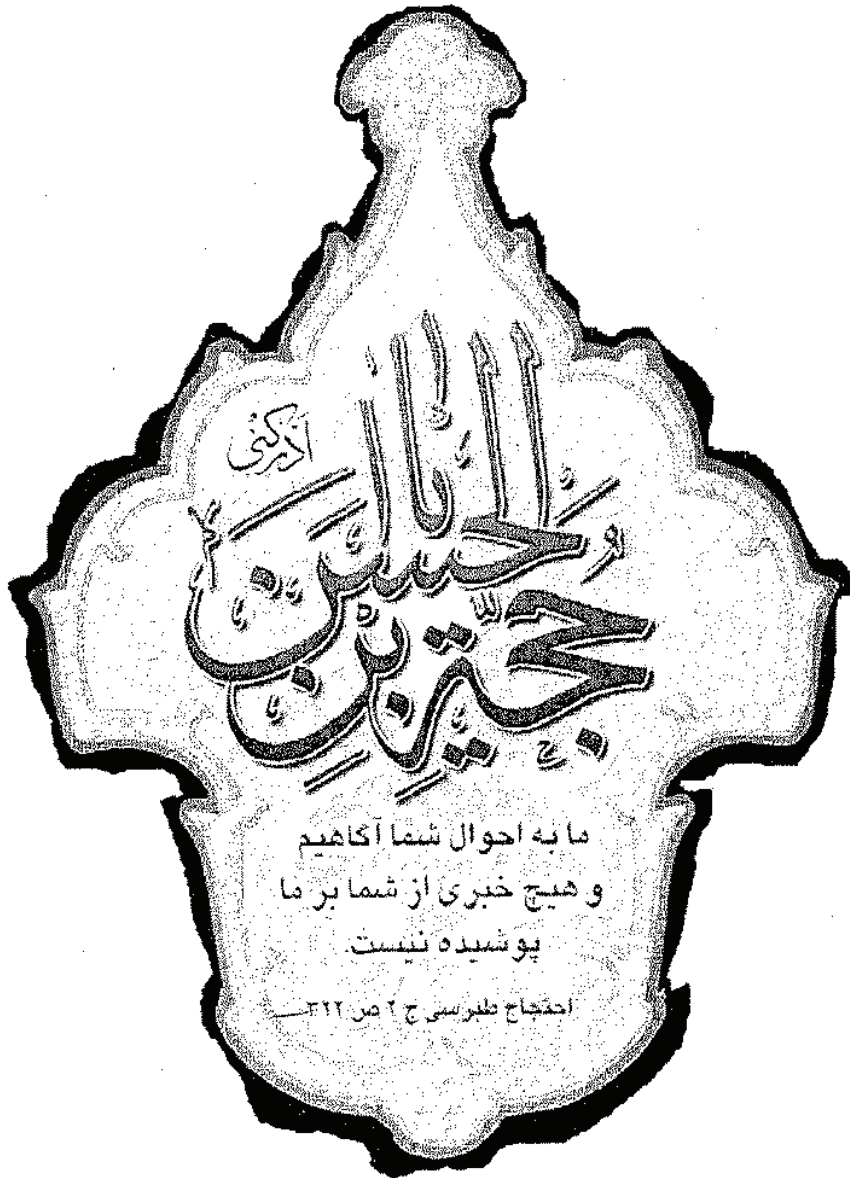 ادرکنی
یا حجة بن الحسن
ما به احوال شما آگاهیم
و هیچ خبری از شما بر ما
پوشیده نیست.
احتجاج طبرسی ج ۲ ص ۳۲۲